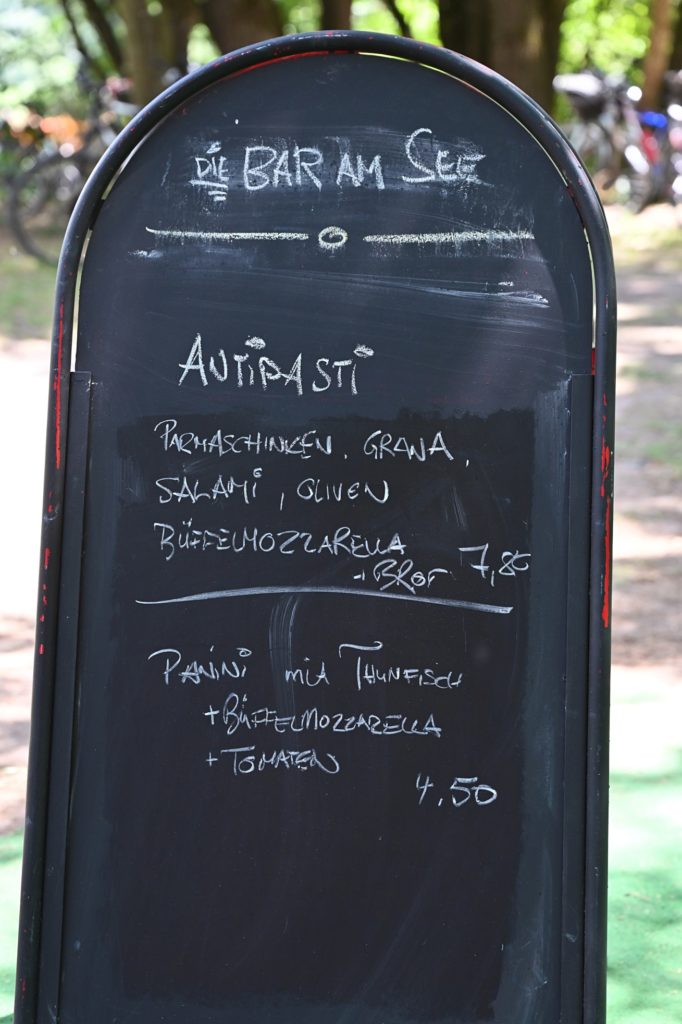 DIE BAR AM SEE
ANTIPASTI
PARMASCHINKEN, GRANA,
SALAMI, OLIVEN
BÜFFELMOZZARELLA
+ BROT 7,80
PANINI MIT THUNFISCH
+ BÜFFELMOZZARELLA
+ TOMATEN
4.50